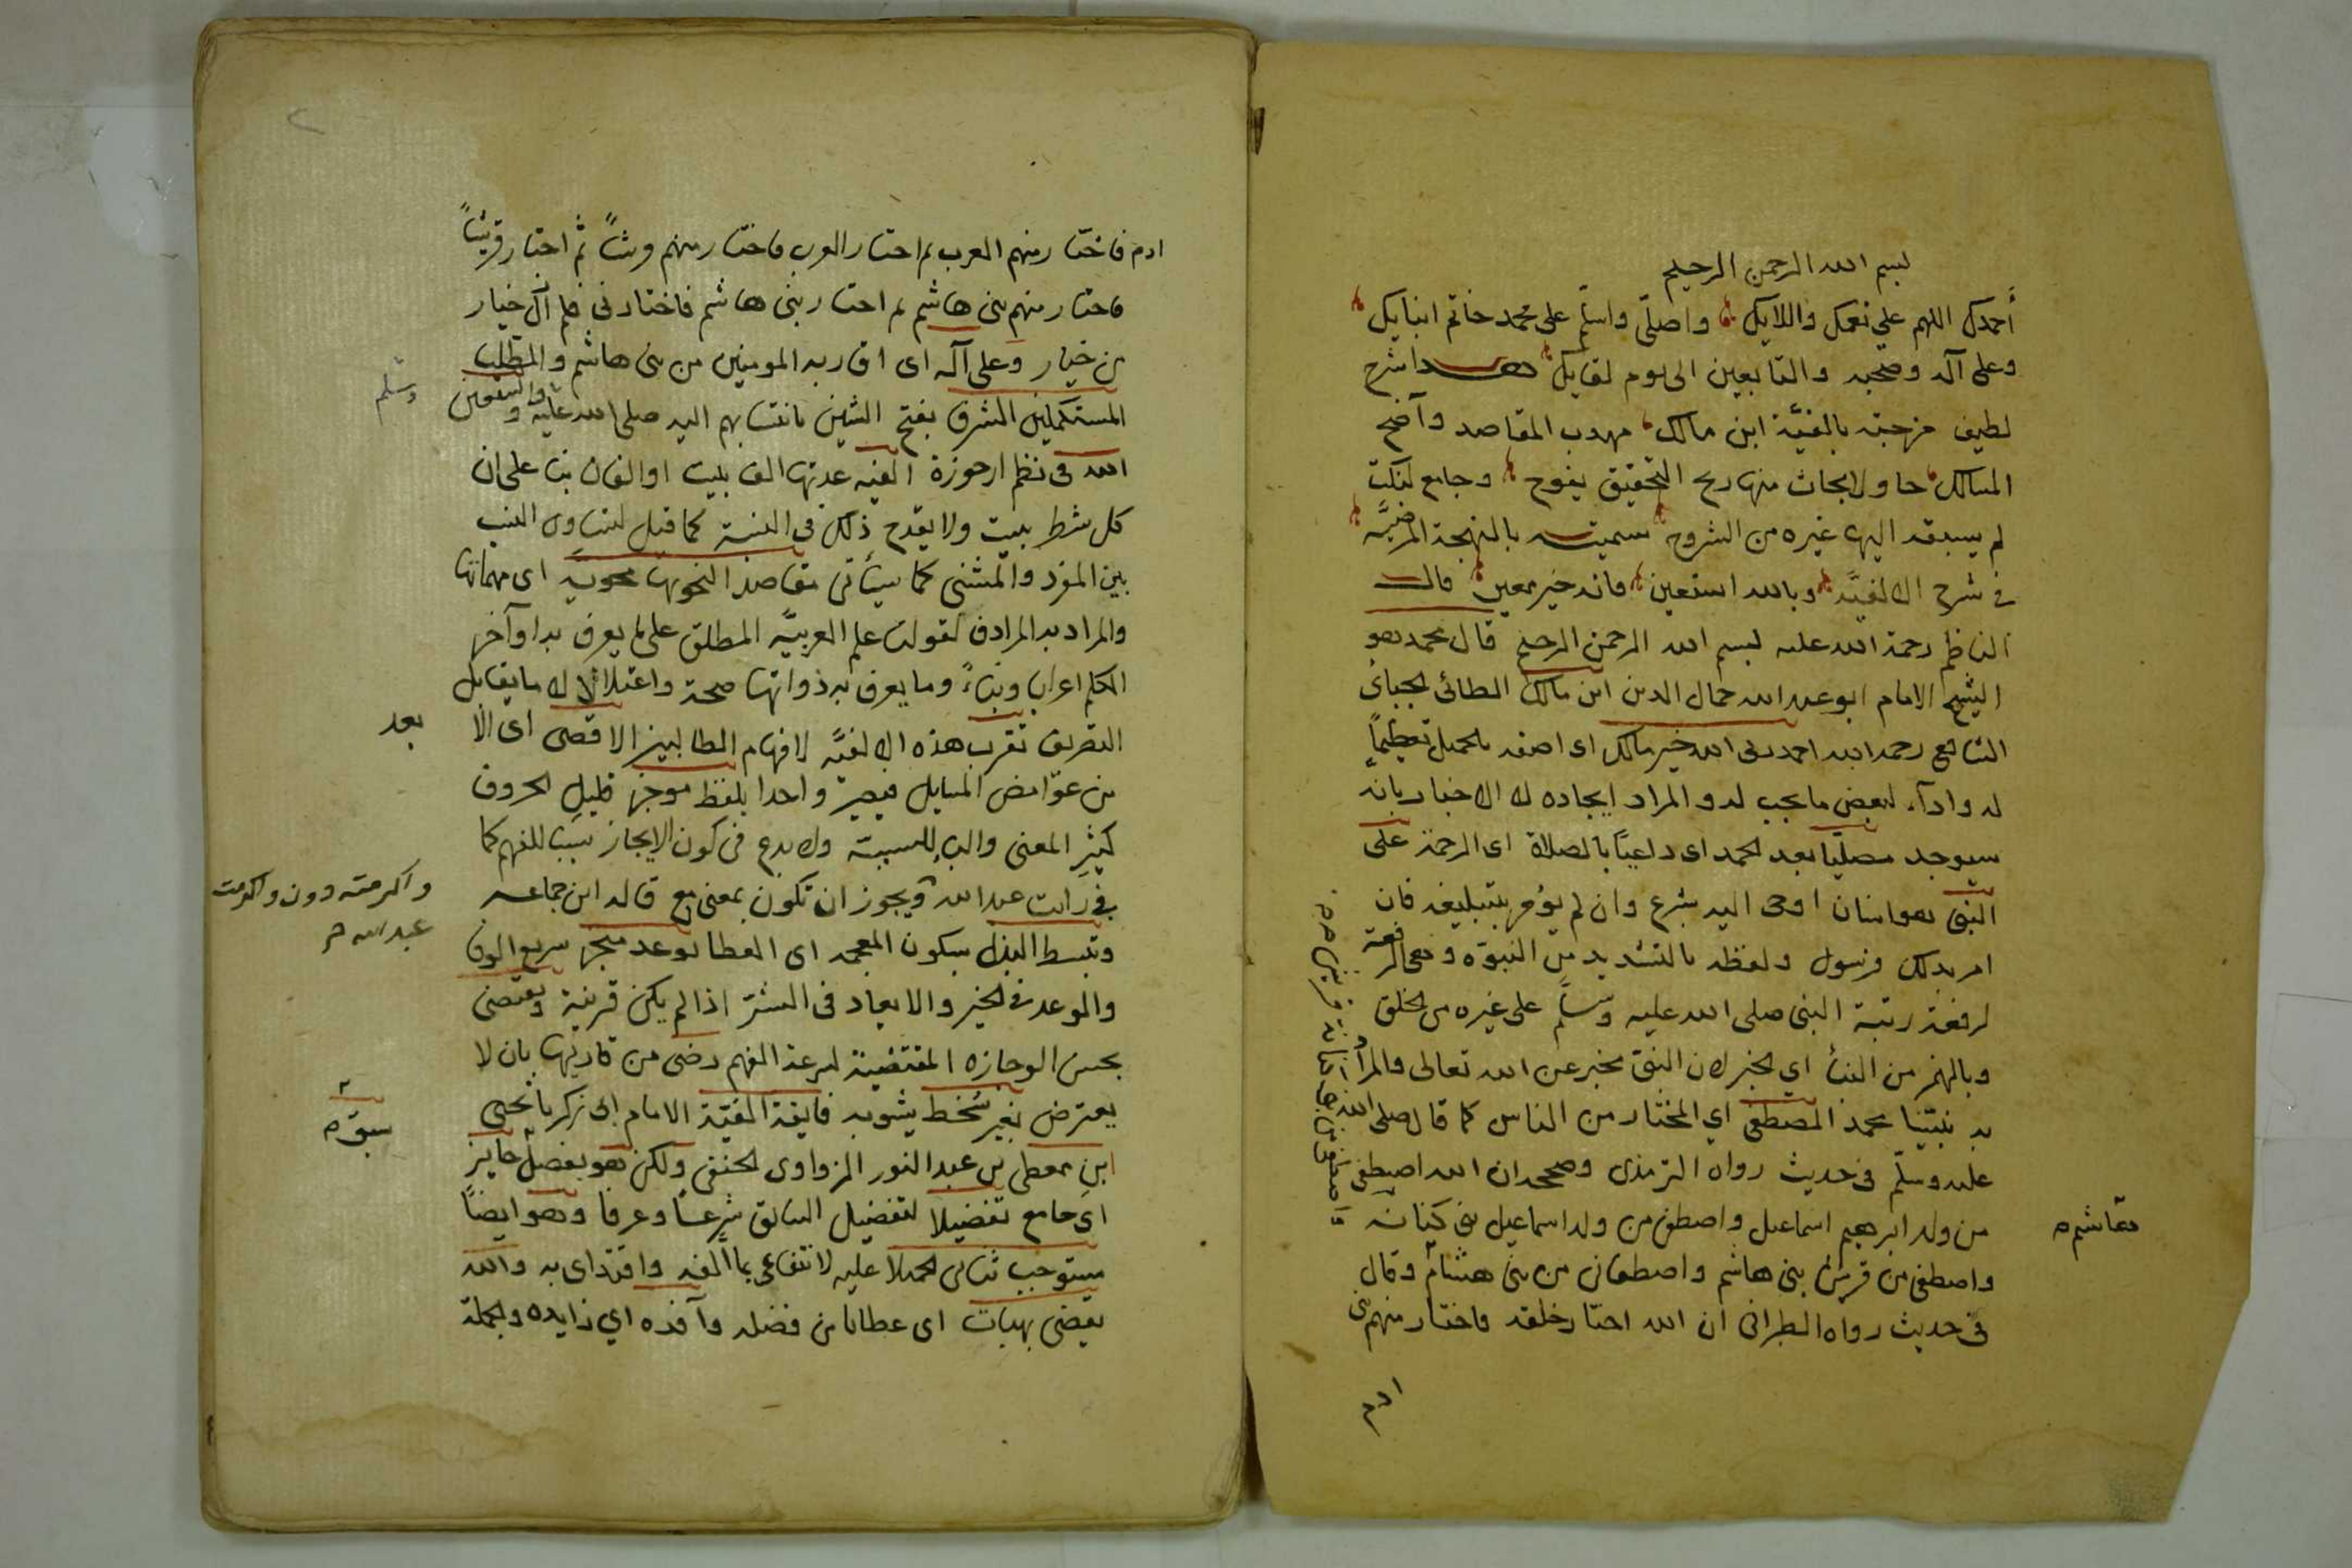 بسم الله الرحمن الرحيم
أحمدك اللهم على نعمك وآلايك واصلّي واسلّم على محمد خاتم انبيايك
وعلى آله وصحبه والتابعين الى يوم لقايك هذا شرح
لطيف مزجته بالفيّة ابن مالك مهدب المقاصد واضح
المسالك حاو لابحاث منها ريح التحقيق يفوح وجامع لنكت
لم يسبقه اليها غيره من الشروح سميته بالبهجة المرضيّه
في شرح الالفيّه وبالله استعين فانه خير معين قال
الناظم رحمة الله عليه بسم الله الرحمن الرحيم قال محمد هو
الشيخ الامام ابو عبد الله جمال الدين ابن مالك الطائى الجيانى
الشافعي رحمه الله احمد ربى الله خير مالك اى اصفه بالجميل تعظيماً
له واداء لبعض ما يجب له والمراد ايجاده لا الاخبار بانه
سيوجد مصلّيا بعد الحمد اى داعيًا بالصلاة اى الرحمة على
النبى هو انسان اوحى اليه بشرع وان لم يؤمر بتبليغه فان
امر بذلك فرسول ولفظه بالتشديد من النبوة وهى الرفعة
لرفعة رتبة النبى صلى الله عليه وسلم على غيره من الخلق
وبالهمز من النبأ اي الخبر لان النبى مخبر عن الله تعالى والمراد
به نبيّنا محمد المصطفى اي المختار من الناس كما قال صلى الله
عليه وسلّم فى حديث رواه الترمذى وصححه ان الله اصطفى
من ولد ابرهيم اسماعيل واصطفى من ولد اسماعيل بنى كنانه
هاشم صح
واصطفى من قريش بنى هاشم واصطفانى من بنى هشام وقال
فى حديث رواه الطبرانى ان الله اختار خلقه فاختار منهم بنى
واصطفى من بنى كنانة قريش صح
ادم فاختار منهم العرب ثم اختار العرب فاختار منهم قريشاً ثم اختار قريشاً
فاختار منهم بنى هاشم ثم اختار بنى هاشم فاختارنى فلم ازل خيار
من خيار وعلى آله اى اقاربه المومنين من بنى هاشم والمطّلب
وسلم
المستكملين الشرف بفتح الشين بانتسابهم اليه صلى الله عليه واستعين
الله فى نظم ارجوزة الفيه عدتها الف بيت او الفان بنا على ان
كل شطر بيت ولا يقدح ذلك فى النسبة كما قيل لتساوى النسب
بين المفرد والمثنى كما سيأتى مقاصد النحو بها محويه اى مهماتها
والمراد به المرادف لقولنا علم العربيّة المطلق على ما يعرف به اواخر
الكلم اعرابا وبناءً وما يعرف به ذواتها صحة واعتلالا لا ما يقابل
التصريف تقرب هذه الالفيّه لافهام الطالبين الاقصى اى الا
بعد
من غوامض المسايل فيصير واحدا بلفظ موجز قليل الحروف
كثير المعنى والباء للسببية ولا بدع فى كون الايجاز سببا للفهم كما
فى رأيت عبد الله ويجوز ان تكون بمعنى مع قاله ابن جماعه
واكرمته دون واكرمت
عبد الله صح
وتبسط البذل بسكون المعجمه اى العطا بوعد منجز سريع الوفا
والوعد في الخير والايعاد فى الشرّ اذا لم يكن قرينة وتقتضى
بحسن الوجازه المقتضية لسرعة الفهم رضى من قاريها بان لا
يعترض بغير سُخط يشوبه فايقة الفيّة الامام ابى زكريا يحيى
ابن معطى بن عبد النور الزواوى الحنفى ولكن هو بفضل حايز
سبق صح
اى جامع تفضيلا لتفضيل السابق شرعًا وعرفا وهو ايضًا
مستوجب ثنائى الجميلا عليه لانتفاعى بما الفه واقتداى به والله
يقضى بهبات اى عطايا من فضله وافره اي زايده والجملة